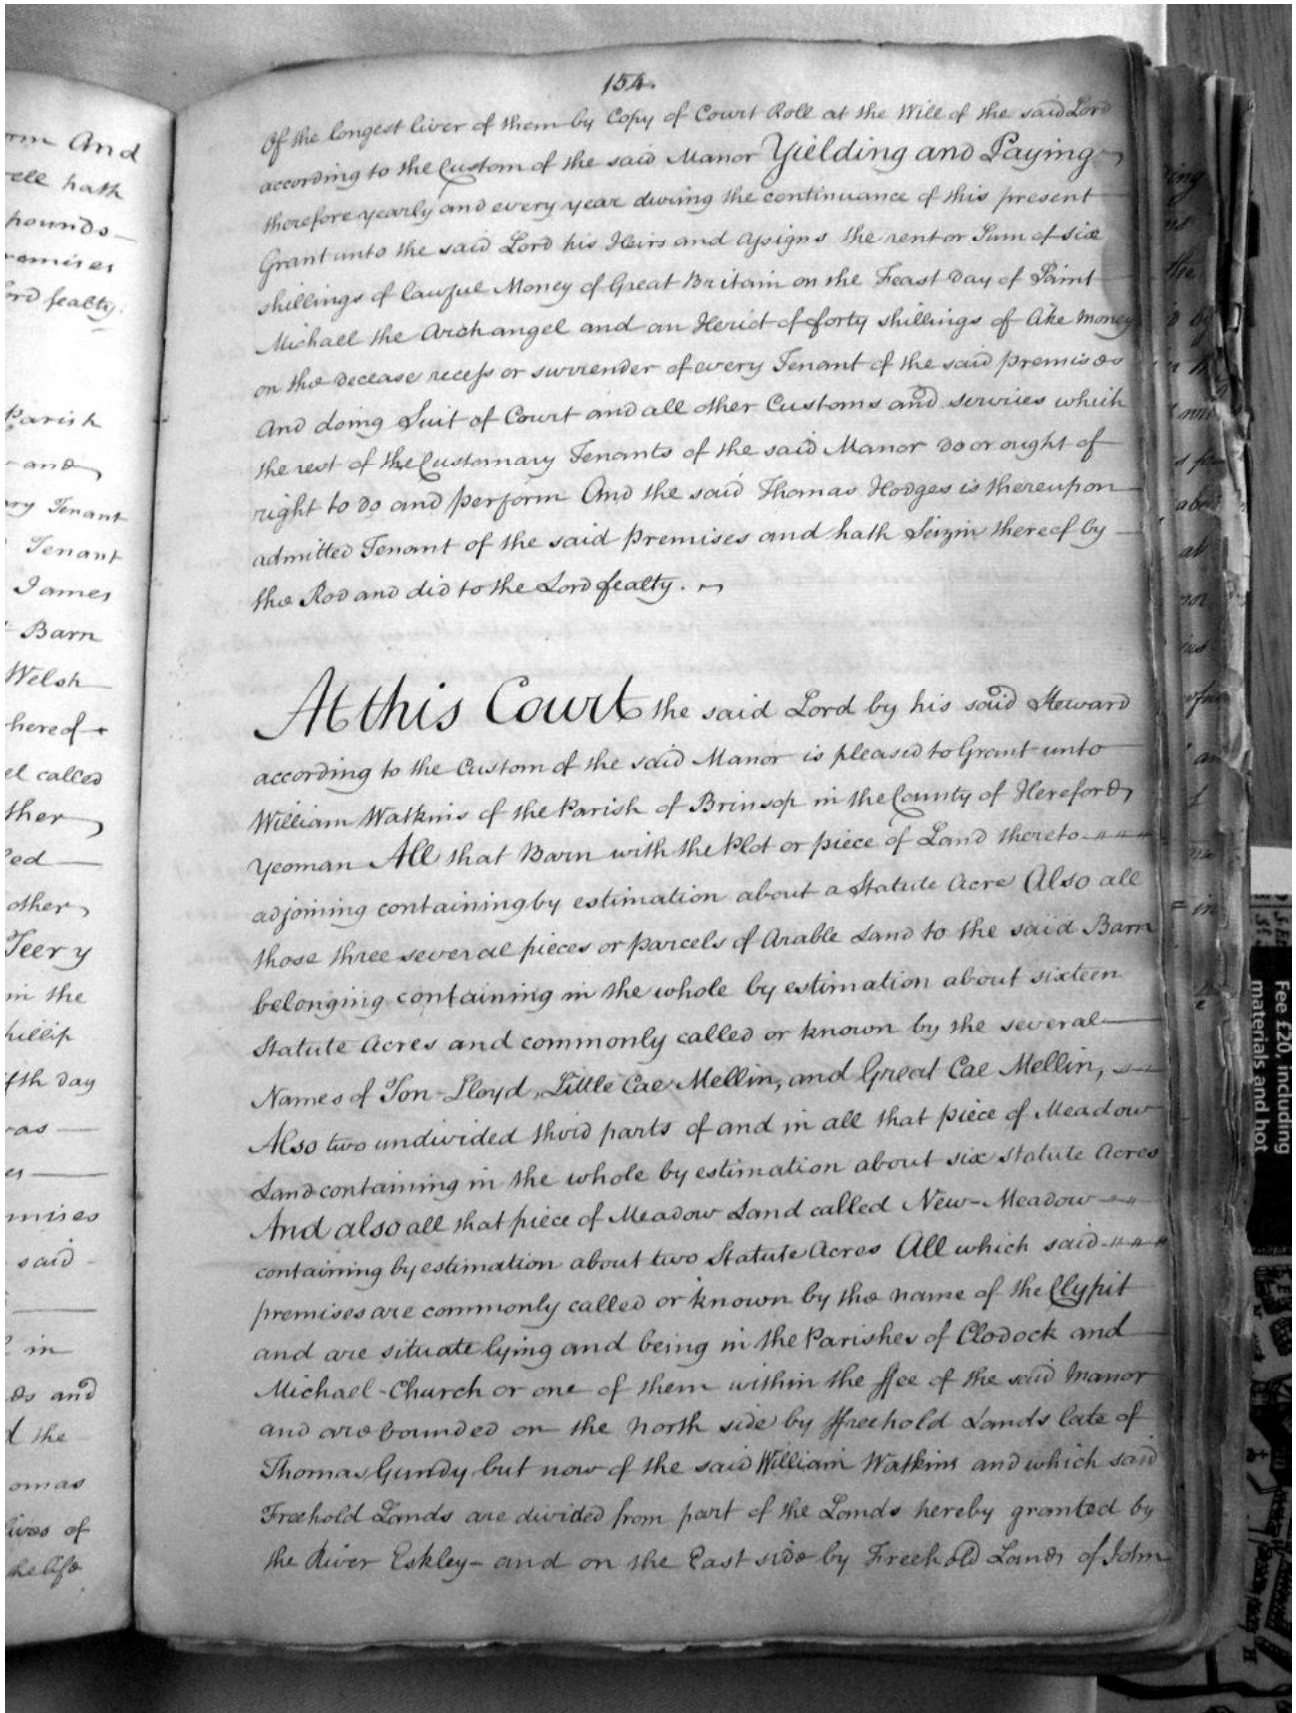 154.
Of the longest liver of them by Copy of Court Roll at the Will of the said Lord
according to the Custom of the said Manor Yielding and Paying
therefore yearly and every year during the continuance of this present
Grant unto the said Lord his Heirs and Assigns the rent or Sum of six
shillings of lawful Money of Great Britain on the Feast Day of Saint
Michael the Archangel and an Heriot of forty shillings of like Money
on the decease recess or surrender of every Tenant of the said premises
And doing Suit of Court and all other Customs and services which
the rest of the Customary Tenants of the said Manor do or ought of
right to do and perform And the said Thomas Hodges is thereupon
admitted Tenant of the said premises and hath Seizin thereof by
the Rod and did to the Lord fealty.
At this Court the said Lord by his said Steward
according to the Custom of the said Manor is pleased to Grant unto
William Watkins of the Parish of Brinsop in the County of Hereford
Yeoman All that Barn with the Plot or piece of Land thereto
adjoining containing by estimation about a Statute Acre Also all
those three several pieces or parcels of Arable Land to the said Barn
belonging containing in the whole by estimation about sixteen
Statute Acres and commonly called or known by the several
Names of Ton-Lloyd, Little Cae Mellin, and Great Cae Mellin,
Also two undivided third parts of and in all that piece of Meadow
Land containing in the whole by estimation about six Statute Acres
And also all that piece of Meadow Land called New-Meadow
containing by estimation about two Statute Acres All which said
premises are commonly called or known by the name of the Clypit
and are situate lying and being in the Parishes of Clodock and
Michael-Church or one of them within the ffee of the said Manor
and are bounded on the North side by ffreehold Lands late of
Thomas Gundy but now of the said William Watkins and which said
Freehold Lands are divided from part of the Lands hereby granted by
the River Eskley - and on the East side by Freehold Lands of John
And
hath
pounds
fealty.
Parish
and
Tenant
Tenant
James
Barn
Welsh
hereof
called
other
in the
day
said
in
and
the
lives of
Fee £20, including
materials and hot